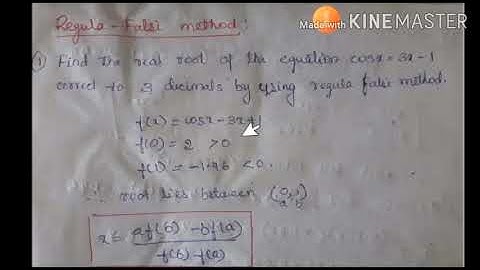 Made with KINEMASTER
Regula-Falsi method:
① Find the real root of the equation cosx = 3x - 1
correct to 3 decimals by using regula falsi method.
f(x) = cosx - 3x + 1
f(0) = 2 > 0
f(1) = -1.46 < 0.
∴ root lies between (0,1)
a b
x = af(b) - bf(a)
f(b) - f(a)